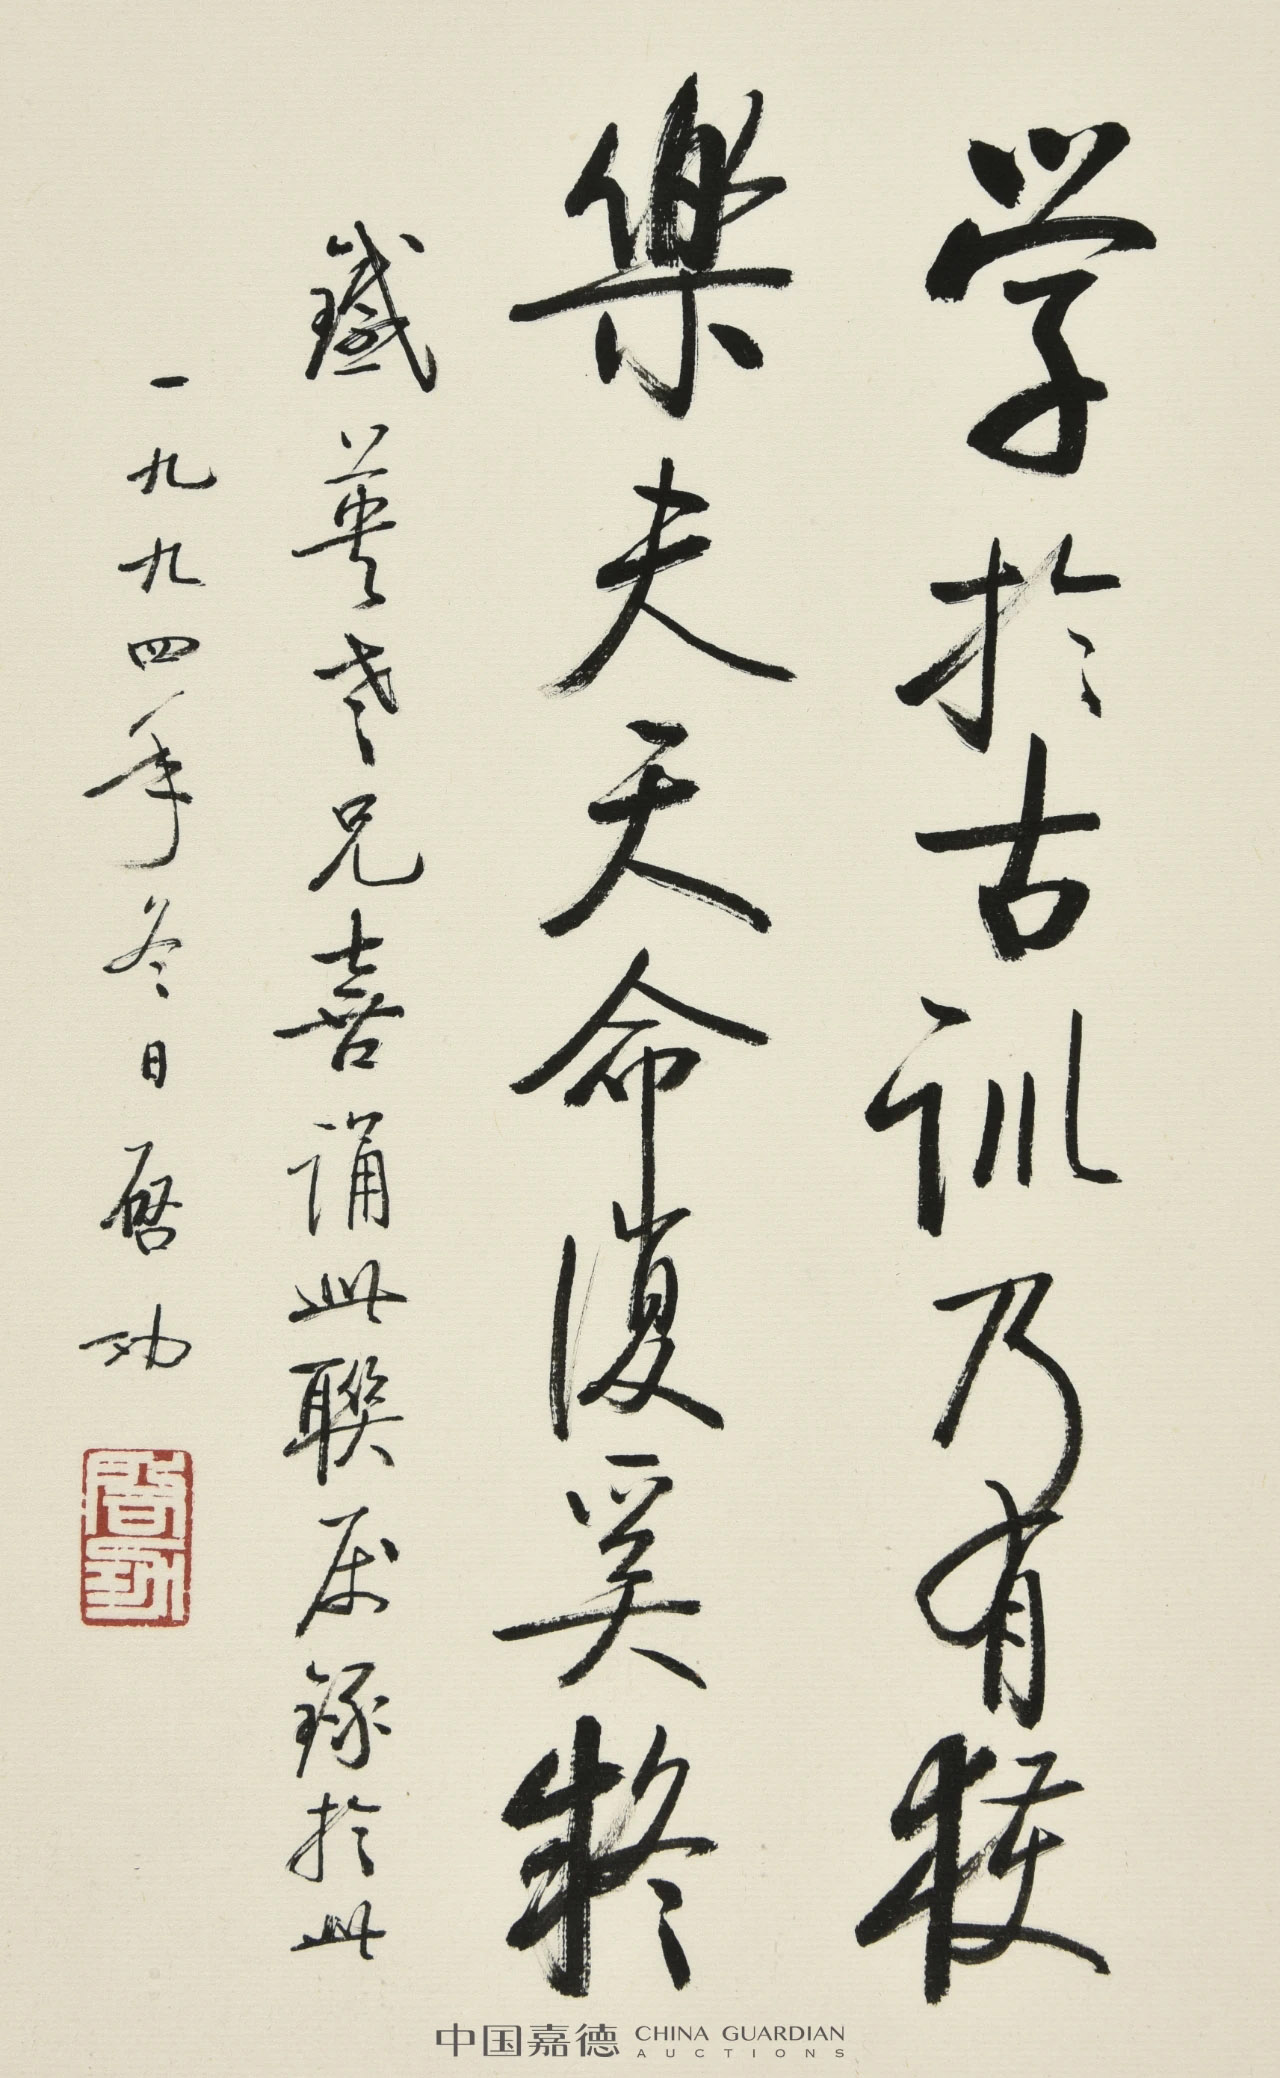 学於古训乃有获
樂夫天命復奚疑
鐵英老兄喜诵此聯属録於此
一九九四年冬日启功
啓功
中国嘉德 CHINA GUARDIAN
AUCTIONS